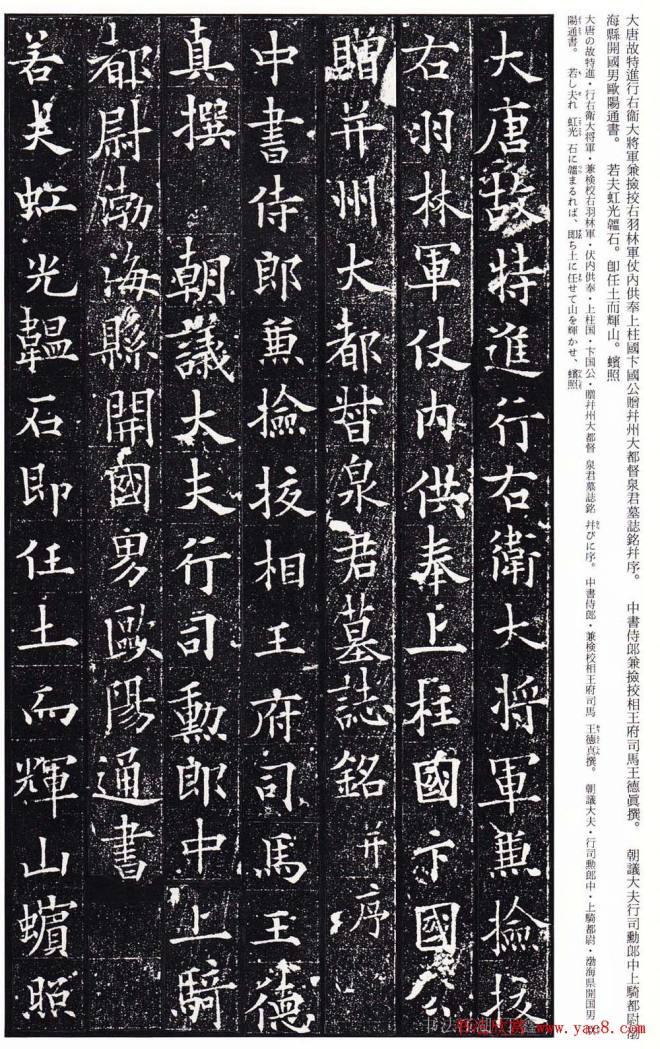 大唐故特進行右衞大將軍兼撿挍右羽林軍仗內供奉上柱國卞國公贈幷州大都督泉君墓誌銘幷序。　中書侍郎兼撿挍相王府司馬王德眞撰。　朝議大夫行司勳郎中上騎都尉渤
海縣開國男歐陽通書。　若夫虹光韞石。卽任土而輝山。蠙照
大唐の故特進・行右衛大将軍・兼検校右羽林軍・仗内供奉・上柱国・卞国公・贈幷州大都督　泉君墓誌銘　幷びに序。　中書侍郎・兼検校相王府司馬　王徳真撰。　朝議大夫・行司勲郎中・上騎都尉・渤海県開国男　欧
陽通書。　若し夫れ　虹光　石に韞まるれば、即ち土に任せて山を輝かせ、蠙照
大唐故特進行右衛大将軍兼撿挍
右羽林軍仗内供奉上柱國卞國公
贈并州大都督泉君墓誌銘并序
中書侍郎兼撿挍相王府司馬王德
真撰　朝議大夫行司勳郎中上騎
都尉渤海縣開國男歐陽通書
若夫虹光韞石即任土而輝山蠙照
www.yac8.com